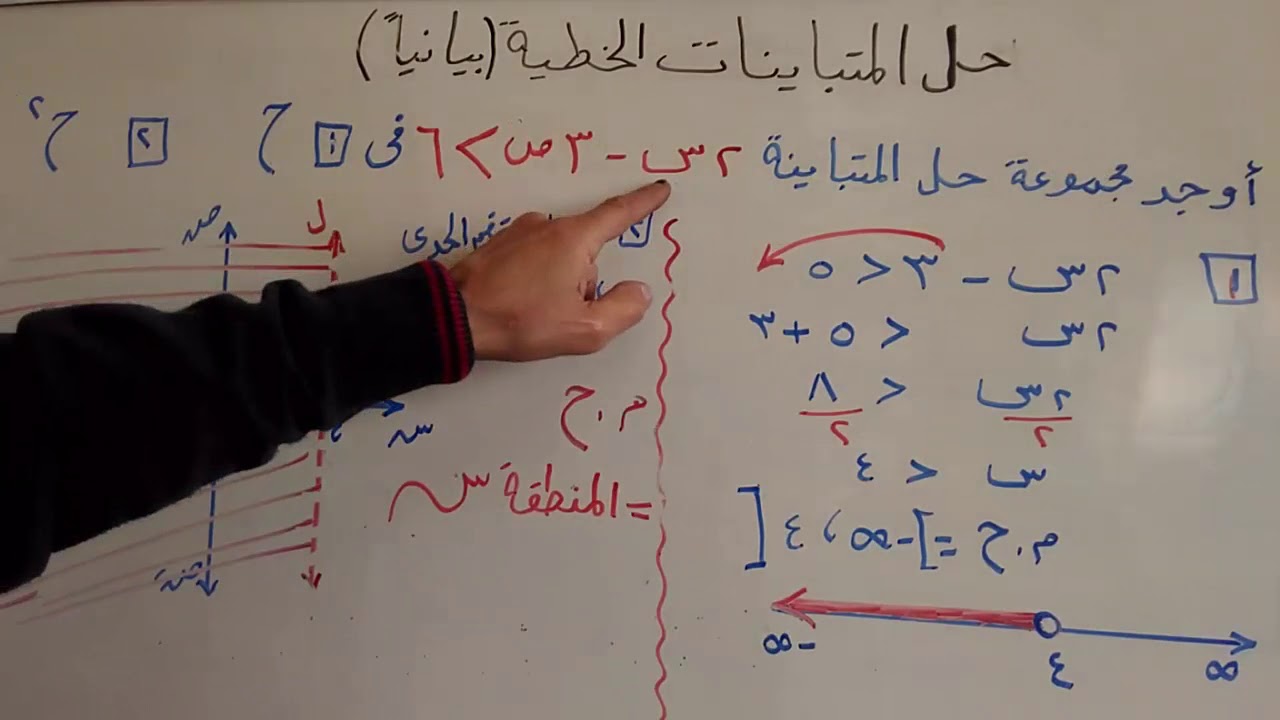 حل المتباينات الخطية (بيانياً)
أوجد مجموعة حل المتباينة ٢س - ٣ص > ٦ فى ١ ح ٢ ح٢
١ ٢س - ٣ < ٥
٢س < ٥ + ٣
٢س/٢ < ٨/٢
س < ٤
م.ح = ]-∞، ٤[
-∞ ٤ ∞
٢ الحدى
م.ح
= المنطقة س
ل
ص
س
صَ